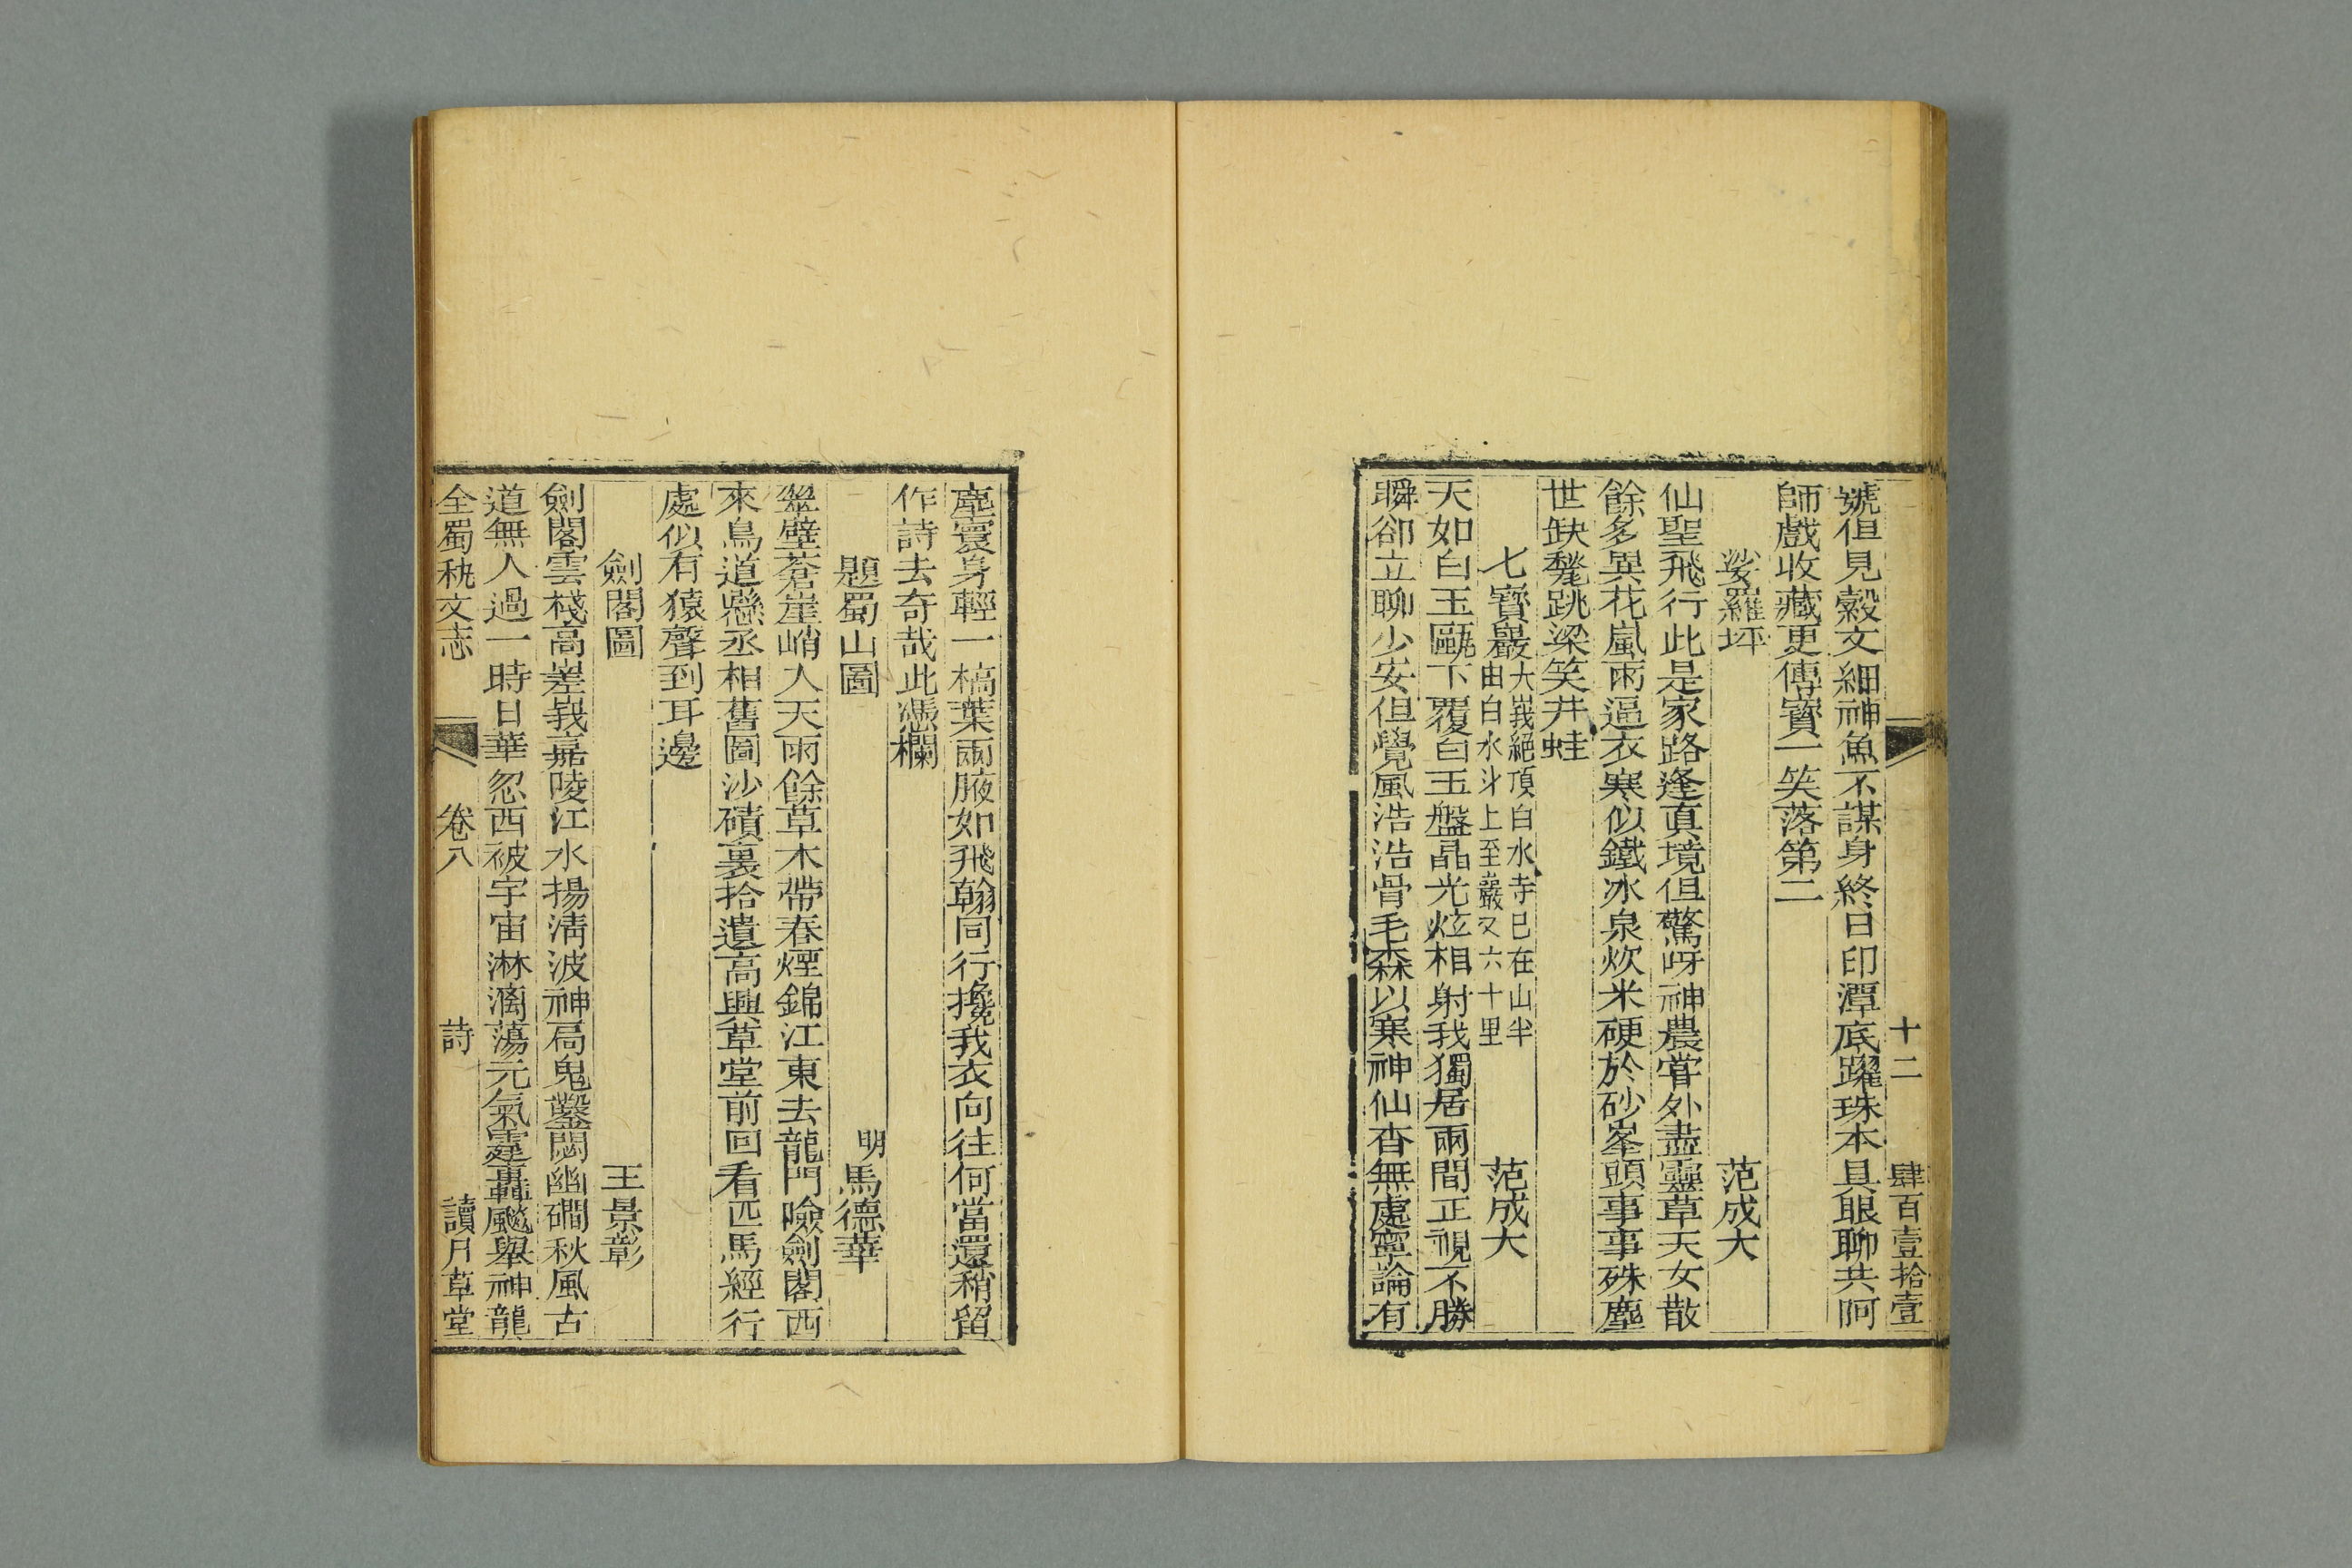 十二　肆百壹拾壹
號但見縠文細神魚不謀身終日印潭底躍珠本具眼聊共阿
師戲收藏更傳寶一笑落第二
娑羅坪　范成大
仙聖飛行此是家路逢真境但驚呀神農嘗外盡靈草天女散
餘多異花嵐雨逼衣寒似鐵冰泉炊米硬於砂峯頭事事殊塵
世缺甃跳梁笑井蛙
七寶巖大峩絕頂白水寺已在山半由白水斗上至巖又六十里　范成大
天如白玉甌下覆白玉盤晶光炫相射我獨居兩間正視不勝
瞬卻立聊少安但覺風浩浩骨毛森以寒神仙杳無處寧論有
塵寰身輕一槁葉兩腋如飛翰同行攙我衣向往何當還稍留
作詩去奇哉此憑欄
題蜀山圖　明馬德華
翠壁蒼崖峭入天雨餘草木帶春煙錦江東去龍門險劍閣西
來鳥道懸丞相舊圖沙磧裏拾遺高興草堂前回看匹馬經行
處似有猿聲到耳邊
劍閣圖　王景彰
劍閣雲棧高嵳峩嘉陵江水揚淸波神扃鬼鑿閟幽磵秋風古
道無人過一時日華忽西被宇宙淋漓蕩元氣霆轟飈舉神龍
全蜀秇文志　卷八　詩　讀月草堂